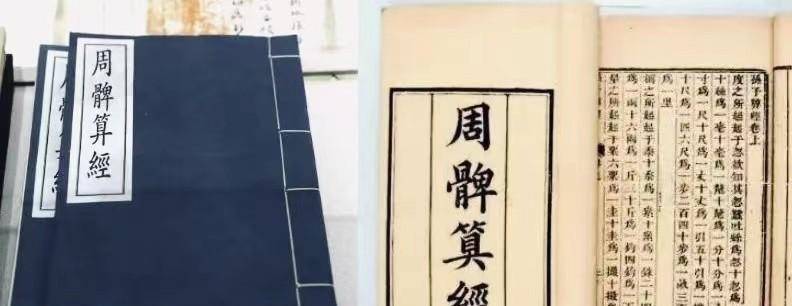 周髀算經
周髀算經
孫子算經卷上
度之所起起于忽欲知其忽蠶吐絲爲忽十忽爲
十絲爲一毫十毫爲一氂十氂爲一分十分爲
寸爲一尺十尺爲一丈十丈爲一引五十引爲一
十尺爲一匹六尺爲一步二百四十步爲一畝三
爲一里
稱之所起起于黍十黍爲一絫十絫爲一銖二十
爲一兩十六兩爲一斤三十斤爲一鈞四鈞爲一
量之所起起于粟六粟爲一圭十圭爲一撮十撮